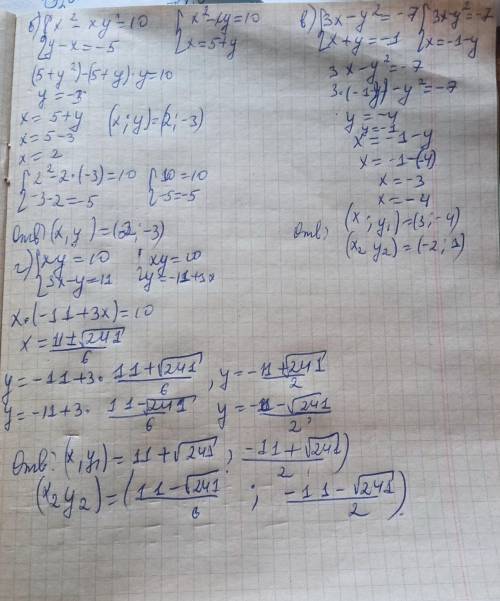 б) {x² - xy² = 10 {x² - xy = 10
{y - x = -5 {x = 5 + y
(5 + y²) - (5 + y) · y = 10
y = -3
x = 5 + y (x; y) = (2; -3)
x = 5 - 3
x = 2
{2² - 2 · (-3) = 10 {10 = 10
{-3 - 2 = -5 {-5 = -5
Отв: (x, y) = (2; -3)
в) {3x - y² = -7 {3x - y² = -7
{x + y = -1 {x = -1 - y
3x - y² = -7
3 · (-1 - y) - y² = -7
y = -4
y = 1
x = -1 - y
x = -1 - (-4)
x = -3
x = -4
Отв: (x; y₁) = (3; -4)
(x₂ y₂) = (-2; 1)
г) {xy = 10 {xy = 10
{3x - y = 11 {y = -11 + 3x
x · (-11 + 3x) = 10
x = 11 ± √241 / 6
y = -11 + 3 · 11 + √241 / 6 , y = -11 + √241 / 2
y = -11 + 3 · 11 - √241 / 6 y = -11 - √241 / 2,
Отв: (x, y₁) = 11 + √241 ; -11 + √241 / 2)
(x₂ y₂) = (11 - √241 / 6 ; -11 - √241 / 2).